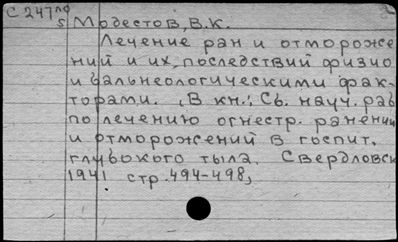 С 247по
5 Модестов, В.К.
Лечение ран и отмороже
ний и их последствий физио
и бальнеологическими фак-
торами. В кн.: Сб. науч. раб
по лечению огнестр. ранении
и отморожений в госпит.
глубокого тыла. Свердловск
1941 стр. 494-498,